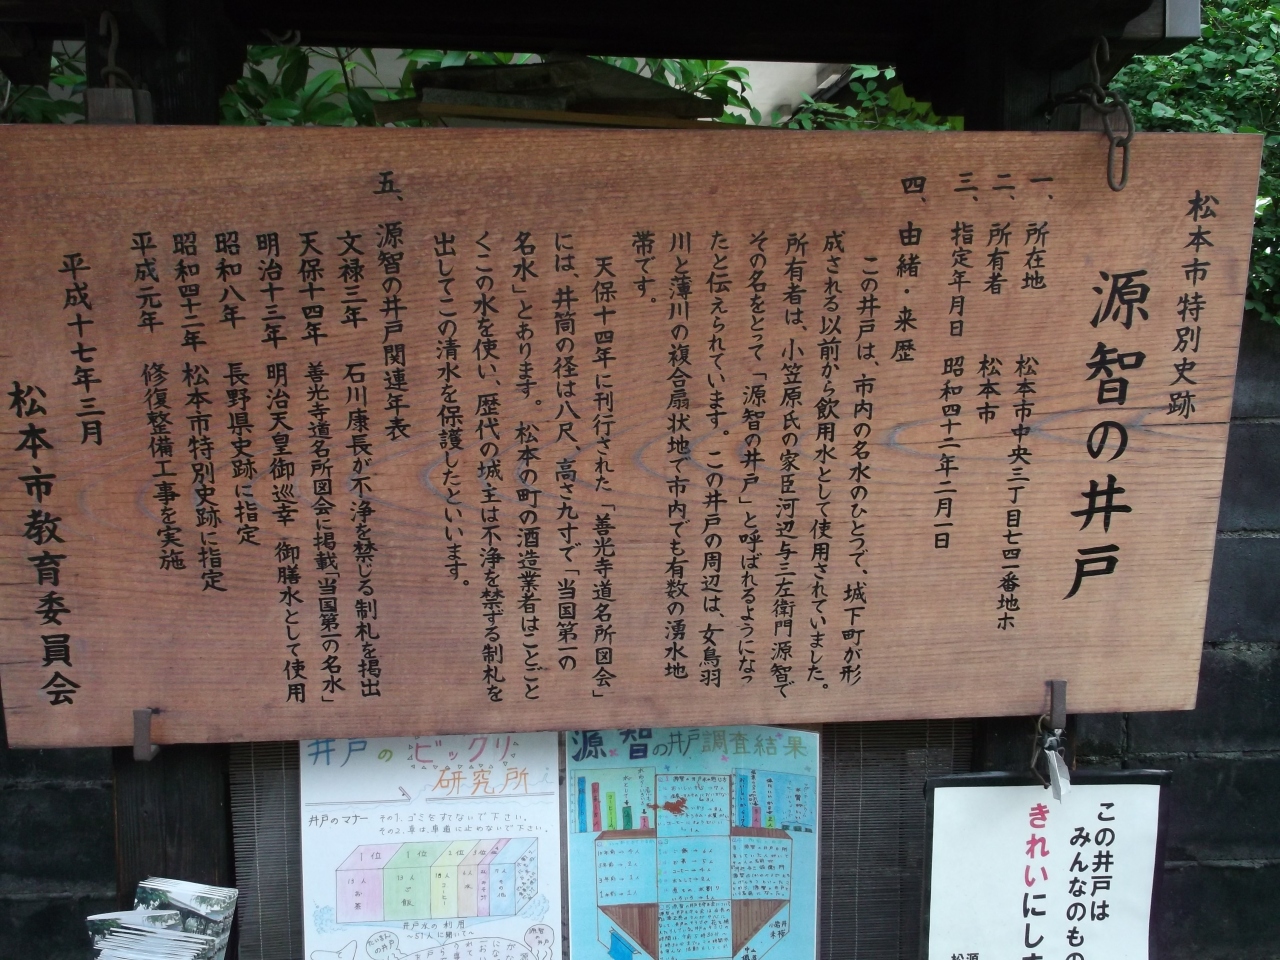 松本市特別史跡
源智の井戸
一、所在地 松本市中央三丁目七四一番地ホ
二、所有者 松本市
三、指定年月日 昭和四十二年二月一日
四、由緒・来歴
この井戸は、市内の名水のひとつで、城下町が形
成される以前から飲用水として使用されていました。
所有者は、小笠原氏の家臣河辺与三左衛門源智で
その名をとって「源智の井戸」と呼ばれるようになっ
たと伝えられています。この井戸の周辺は、女鳥羽
川と薄川の複合扇状地で市内でも有数の湧水地
帯です。
天保十四年に刊行された「善光寺道名所図会」
には、井筒の径は八尺、高さ九寸で「当国第一の
名水」とあります。松本の町の酒造業者はことごと
くこの水を使い、歴代の城主は不浄を禁ずる制札を
出してこの清水を保護したといいます。
五、源智の井戸関連年表
文禄三年 石川康長が不浄を禁じる制札を掲出
天保十四年 善光寺道名所図会に掲載「当国第一の名水」
明治十三年 明治天皇御巡幸 御膳水として使用
昭和八年 長野県史跡に指定
昭和四十二年 松本市特別史跡に指定
平成元年 修復整備工事を実施
平成十七年三月
松本市教育委員会
井戸のビックリ
研究所
井戸のマナー その1、ゴミをすてないで下さい。
その2、車は、車道に止めないで下さい。
1位 1位 2位 3位
井戸水の利用
〜57人に聞いて〜
源智の井戸調査結果
この井戸は
みんなのもの
きれいにしま